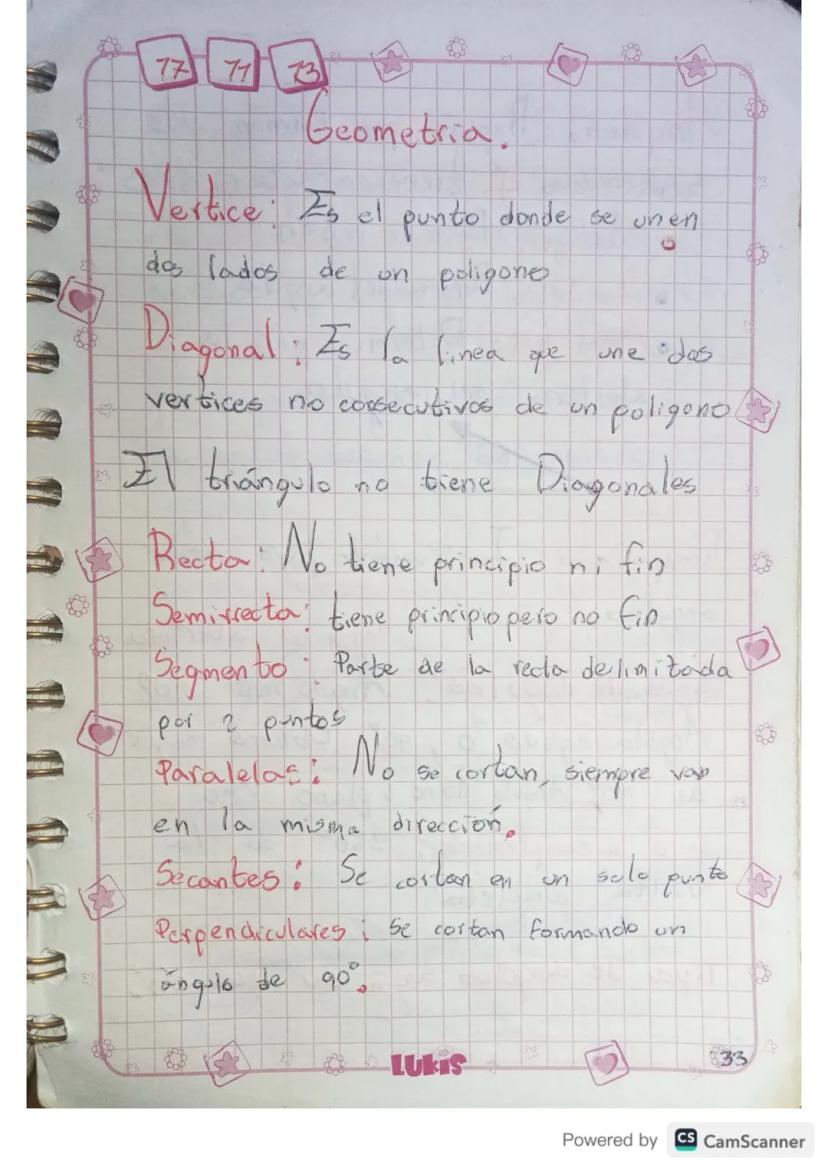 17 71 73
Geometria.
Vertice: Es el punto donde se unen
dos lados de un poligono
Diagonal: Es la linea que une dos
vertices no consecutivos de un poligono
El triángulo no tiene Diagonales
Recta: No tiene principio ni fin
Semirrecta: tiene principio pero no fin
Segmento: Parte de la recta delimitada
por 2 puntos
Paralelas: No se cortan, siempre van
en la misma dirección.
Secantes: Se cortan en un solo punto
Perpendiculares: Se cortan formando un
ángulo de 90°.
LUKIS
33
Powered by CS CamScanner